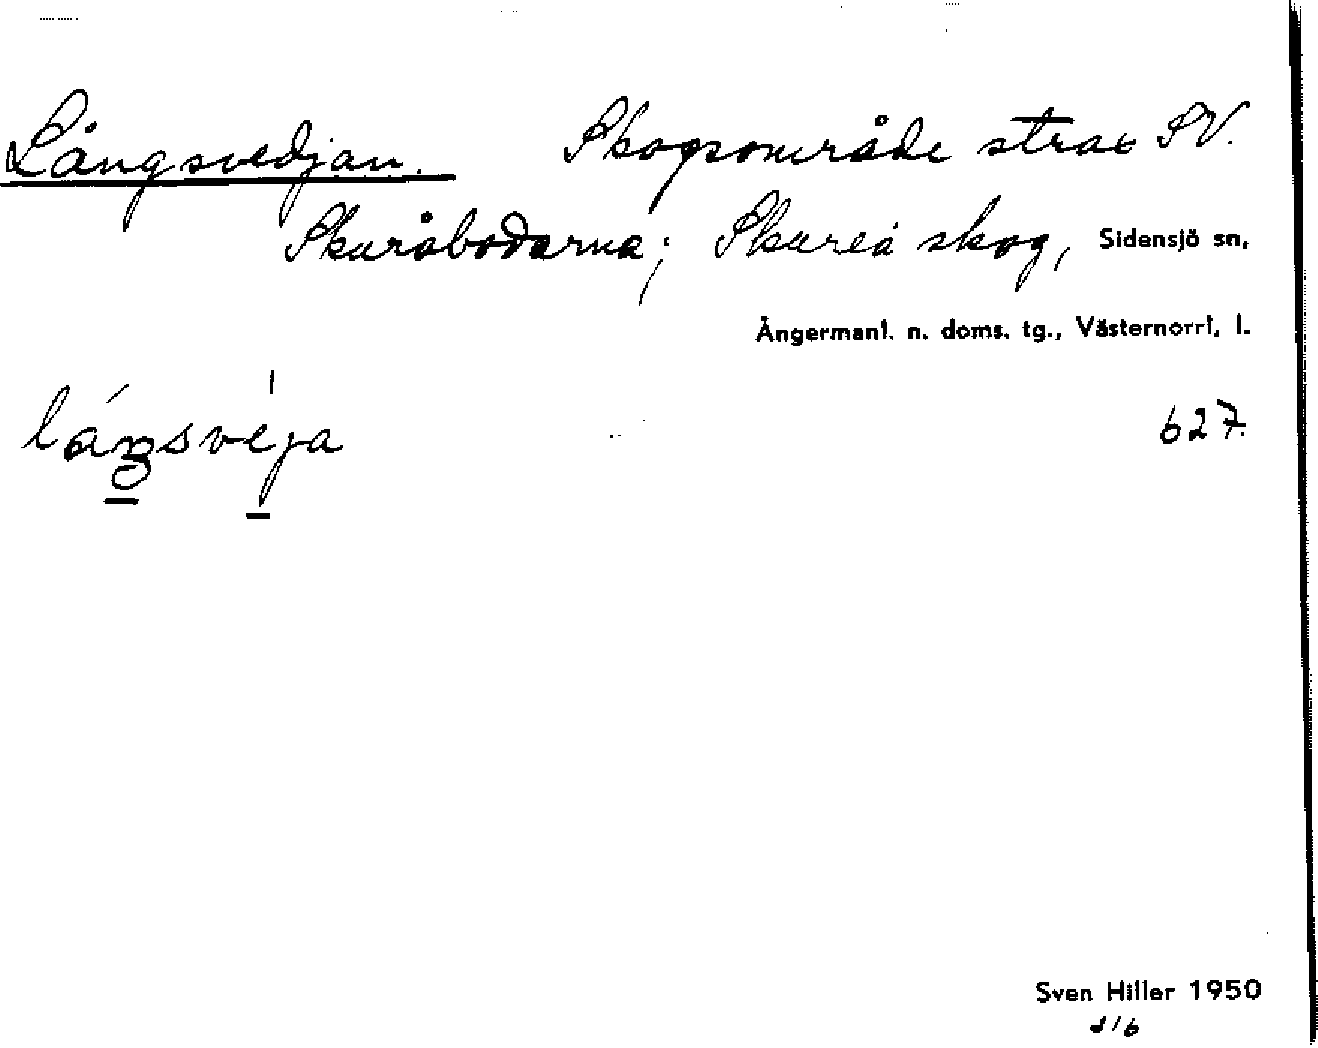 Långsvedjan. Skogsområde strax SV.
Skuråbodarna; Skureå skog, Sidensjö sn,
Ångermanl. n. doms. tg., Västernorrl. l.
627.
Sven Hiller 1950